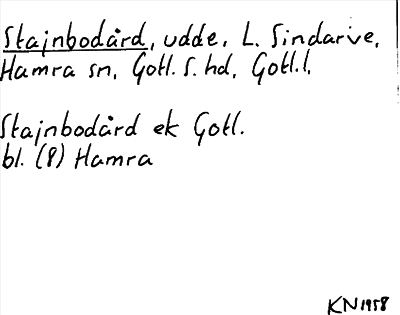 Stajnbodård, udde, L. Sindarve,
Hamra sn, Gotl. S. hd, Gotl. l.
Stajnbodård ek Gotl.
bl. (8) Hamra
KN 1958